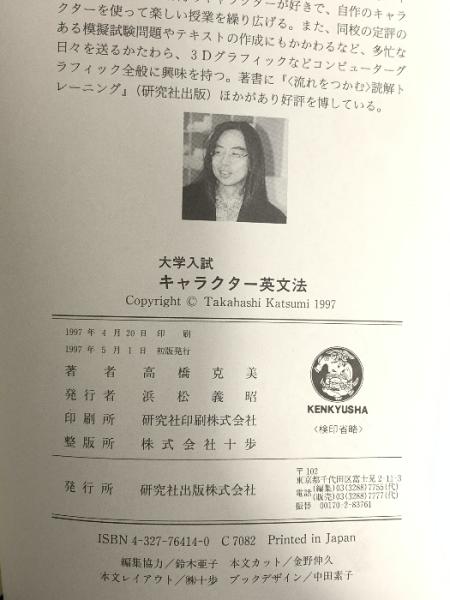 クターを使って楽しい授業を繰り広げる。また、同校の定評の
ある模擬試験問題やテキストの作成にもかかわるなど、多忙な
日々を送るかたわら、3Dグラフィックなどコンピューターグ
ラフィック全般に興味を持つ。著書に『〈流れをつかむ〉読解ト
レーニング』(研究社出版)ほかがあり好評を博している。
大学入試
キャラクター英文法
Copyright © Takahashi Katsumi 1997
1997年4月20日 印 刷
1997年5月1日 初版発行
著者 高橋克美
発行者 浜松義昭
印刷所 研究社印刷株式会社
整版所 株式会社十歩
KENKYUSHA
〈検印省略〉
発行所 研究社出版株式会社
〒102
東京都千代田区富士見2-11-3
電話 (編集)03(3288)7755(代)
(販売)03(3288)7777(代)
振替 00170-2-83761
ISBN 4-327-76414-0 C7082 Printed in Japan
編集協力/鈴木亜子 本文カット/金野伸久
本文レイアウト/㈱十歩 ブックデザイン/中田素子